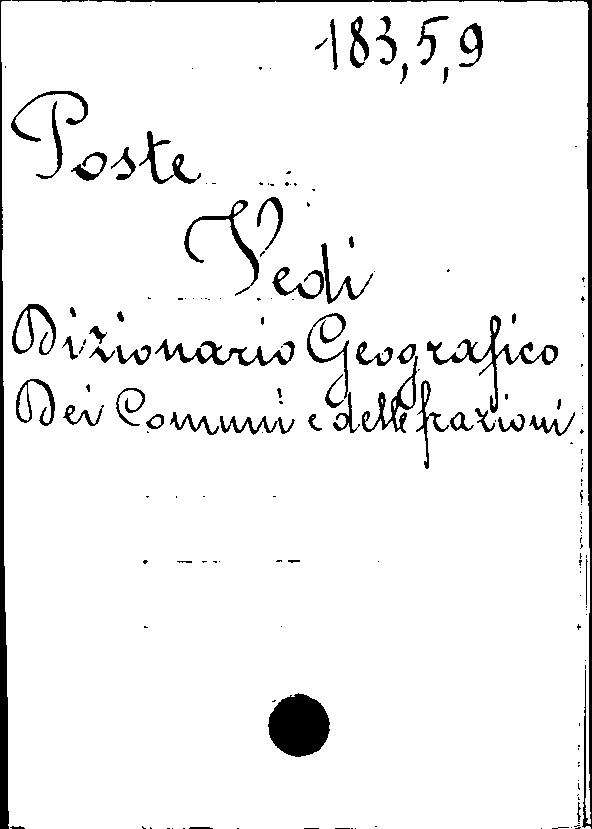 183,5,9
Poste
Vedi
Dizionario Geografico
Dei Comuni e delle frazioni